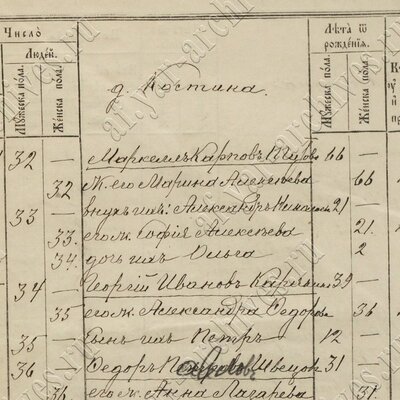 Число
Людей.
Мужеска пола.
Женска пола.
Лѣта ѿ рожденія.
Мужеска пола.
Женска пола.
д. Костина.
32 — Маркеллъ Карповъ 66 —
32 ж. его Марина Алексѣева 66
33 — внукъ ихъ: Александръ 21 —
33. его ж. Софія Алексѣева 21.
34. дочь ихъ Ольга 2
34 — Георгій Ивановъ 39 —
35 его ж. Александра Ѳедорова 36
35 — Сынъ ихъ Петръ 12 —
36 — Ѳедоръ Швецовъ 31 —
36. его ж. Анна Лазарева 31.